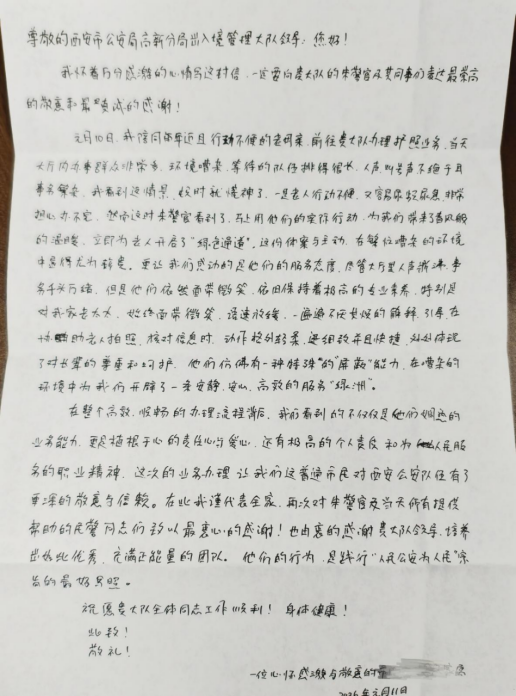 尊敬的西安市公安局高新分局出入境管理大队领导：您好！
我怀着万分感激的心情写这封信，一定要向贵大队的朱警官及其同事们表达最崇高
的敬意和最真诚的感谢！
元月10日，我陪同年迈且行动不便的老母亲，前往贵大队办理护照业务，当天
大厅内办事群众非常多，环境嘈杂，等待的队伍排得很长，人声叫号声不绝于耳
事务繁杂，我看到这情景，顿时就懵神了，一是老人行动不便，又容易烦躁焦急，非常
担心办不完。然而这时朱警官看到了，马上用他们的实际行动，为我们带来了春风般
的温暖，立即为老人开启了“绿色通道”，这份体察与主动，在繁忙嘈杂的环境
中显得尤为珍贵。更让我们感动的是他们的服务态度，尽管大厅里人声鼎沸，事
务千头万绪，但是他们依然面带微笑，依旧保持着极高的专业素养，特别是
对我家老太太，始终面带微笑，语速放缓，一遍遍不厌其烦的解释，引导在
协助老人拍照，核对信息时，动作格外轻柔，连细致并且快捷，处处体现
了对长辈的尊重和呵护，他们仿佛有一种特殊的“屏蔽”能力，在嘈杂的
环境中为我们开辟了一条安静，安心，高效的服务“绿洲”。
在整个高效、顺畅的办理流程背后，我们看到的不仅仅是他们娴熟的
业务能力，更是植根于心的责任心与爱心，还有极高的个人责任和为人民服
务的职业精神，这次的业务办理让我们这普通市民对西安公安队伍有了
更深的敬意与信赖。在此我谨代表全家，再次对朱警官及当天所有提供
帮助的民警同志们致以最衷心的感谢！也由衷的感谢贵大队领导，培养
出如此优秀、充满正能量的团队。他们的行为，是践行“人民公安为人民”宗
旨的最好写照。
祝愿贵大队全体同志工作顺利！身体健康！
此致！
敬礼！
一位心怀感激与敬意的
2026年元月11日